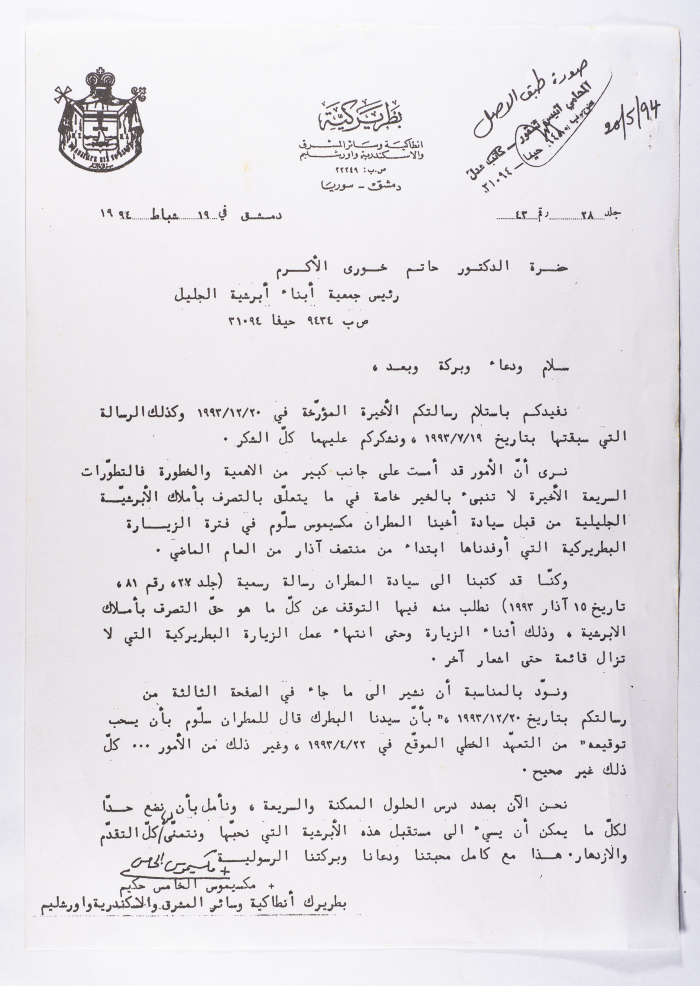 بطريركية
انطاكية وسائر المشرق
والاسكندرية واورشليم
ص.ب: ٢٢٢٤٩
دمشق - سوريا
صورة طبق الاصل
المحامي
كاتب عدل
حيفا - ٣١٠٩٤
20/5/94
جلد ٢٨ رقم ٤٣
دمشق في ١٩ شباط ١٩٩٤
حضرة الدكتور حاتم خورى الأكرم
رئيس جمعية أبناء أبرشية الجليل
ص ب ٩٤٣٤ حيفا ٣١٠٩٤
سلام ودعاء وبركة وبعد ،
نفيدكم باستلام رسالتكم الأخيرة المؤرّخة في ١٩٩٣/١٢/٢٠ وكذلك الرسالة
التي سبقتها بتاريخ ١٩٩٣/٧/١٩ ، ونشكركم عليهما كلّ الشكر .
نرى أنّ الأمور قد أمست على جانب كبير من الاهمية والخطورة فالتطوّرات
السريعة الأخيرة لا تنبىء بالخير خاصة في ما يتعلّق بالتصرف بأملاك الأبرشيّة
الجليلية من قبل سيادة أخينا المطران مكسيموس سلّوم في فترة الزيارة
البطريركية التي أوفدناها ابتداء من منتصف آذار من العام الماضي .
وكنّا قد كتبنا الى سيادة المطران رسالة رسمية (جلد ٢٧، رقم ٨١،
تاريخ ١٥ آذار ١٩٩٣) نطلب منه فيها التوقف عن كلّ ما هو حقّ التصرف بأملاك
الابرشية ، وذلك أثناء الزيارة وحتى انتهاء عمل الزيارة البطريركية التي لا
تزال قائمة حتى اشعار آخر .
ونودّ بالمناسبة أن نشير الى ما جاء في الصفحة الثالثة من
رسالتكم بتاريخ ١٩٩٣/١٢/٢٠ ،" بأنّ سيدنا البطرك قال للمطران سلّوم بأن يسحب
توقيعه" من التعهّد الخطي الموقّع في ١٩٩٣/٤/٢٢ ، وغير ذلك من الأمور ... كلّ
ذلك غير صحيح .
نحن الآن بصدد درس الحلول الممكنة والسريعة ، ونأمل بأن نضع حدّا
لكلّ ما يمكن أن يسيء الى مستقبل هذه الأبرشية التي نحبّها ونتمنّى لها كلّ التقدّم
والازدهار. هذا مع كامل محبتنا ودعانا وبركتنا الرسولية
+ مكسيموس الخامس
+ مكسيموس الخامس حكيم
بطريرك أنطاكية وسائر المشرق والاسكندرية واورشليم